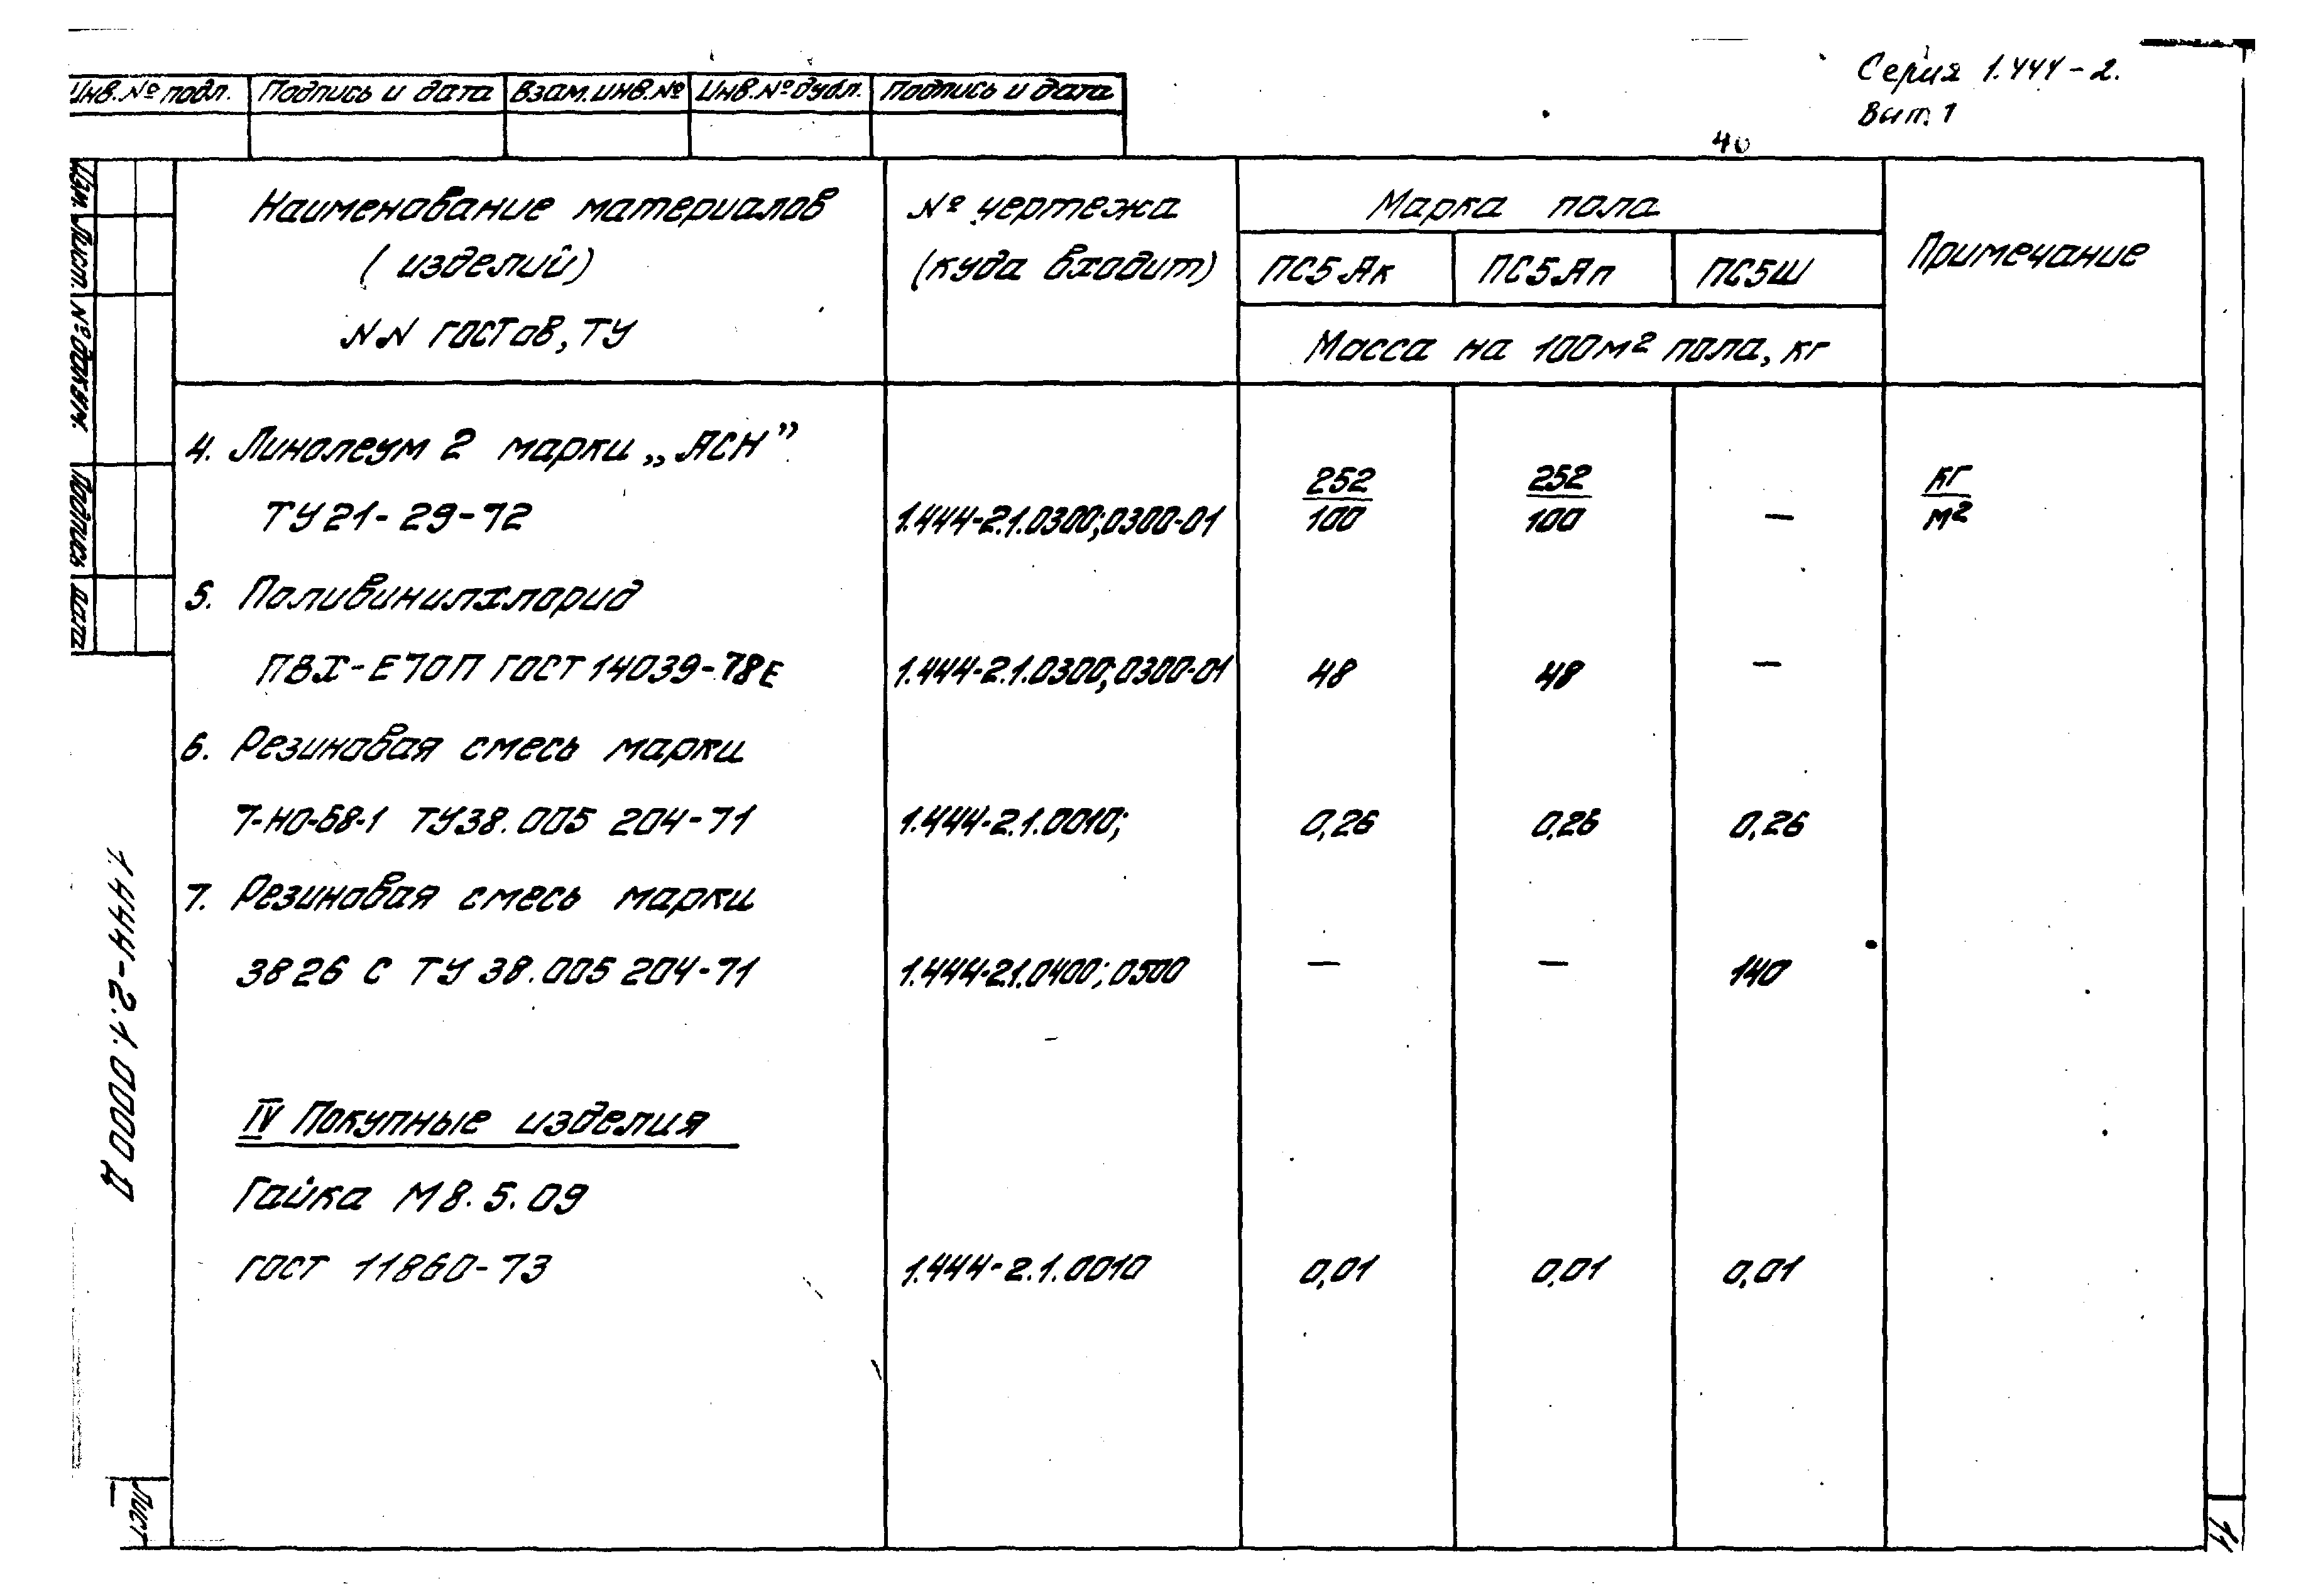 Серия 1.444-2.
Вып. 1
Инв.№ подл. Подпись и дата Взам.инв.№ Инв.№ дубл. Подпись и дата
40
Наименование материалов
(изделий)
NN ГОСТов, ТУ
№ чертежа
(куда входит)
Марка пола
ПС5Ак ПС5Ап ПС5Ш
Масса на 100м² пола, кг
Примечание
4. Линолеум 2 марки „АСН”
ТУ21-29-72 1.444-2.1.0300;0300-01 252/100 252/100 — кг/м²
5. Поливинилхлорид
ПВХ-Е70П ГОСТ 14039-78Е 1.444-2.1.0300;0300-01 48 48 —
6. Резиновая смесь марки
7-НО-68-1 ТУ38.005 204-71 1.444-2.1.0010; 0,26 0,26 0,26
7. Резиновая смесь марки
3826 С ТУ 38.005 204-71 1.444-2.1.0400;0500 — — 140
IV Покупные изделия
Гайка М8.5.09
ГОСТ 11860-73 1.444-2.1.0010 0,01 0,01 0,01
Изм. Лист. № докум. Подпись Дата
1.444-2.1.0000Д
Лист
11